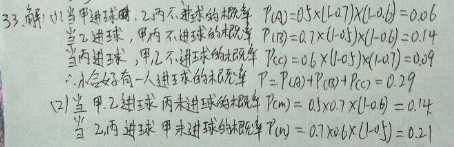 33.解:(1)当甲进球时,乙丙不进球的概率 P(A)=0.5×(1-0.7)×(1-0.6)=0.06
当乙进球,甲丙不进球的概率 P(B)=0.7×(1-0.5)×(1-0.6)=0.14
当丙进球,甲乙不进球的概率 P(C)=0.6×(1-0.5)×(1-0.7)=0.09
∴恰好有一人进球的概率 P=P(A)+P(B)+P(C)=0.29
(2)当甲乙进球丙未进球的概率 P(m)=0.5×0.7×(1-0.6)=0.14
当乙丙进球甲未进球的概率 P(n)=0.7×0.6×(1-0.5)=0.21